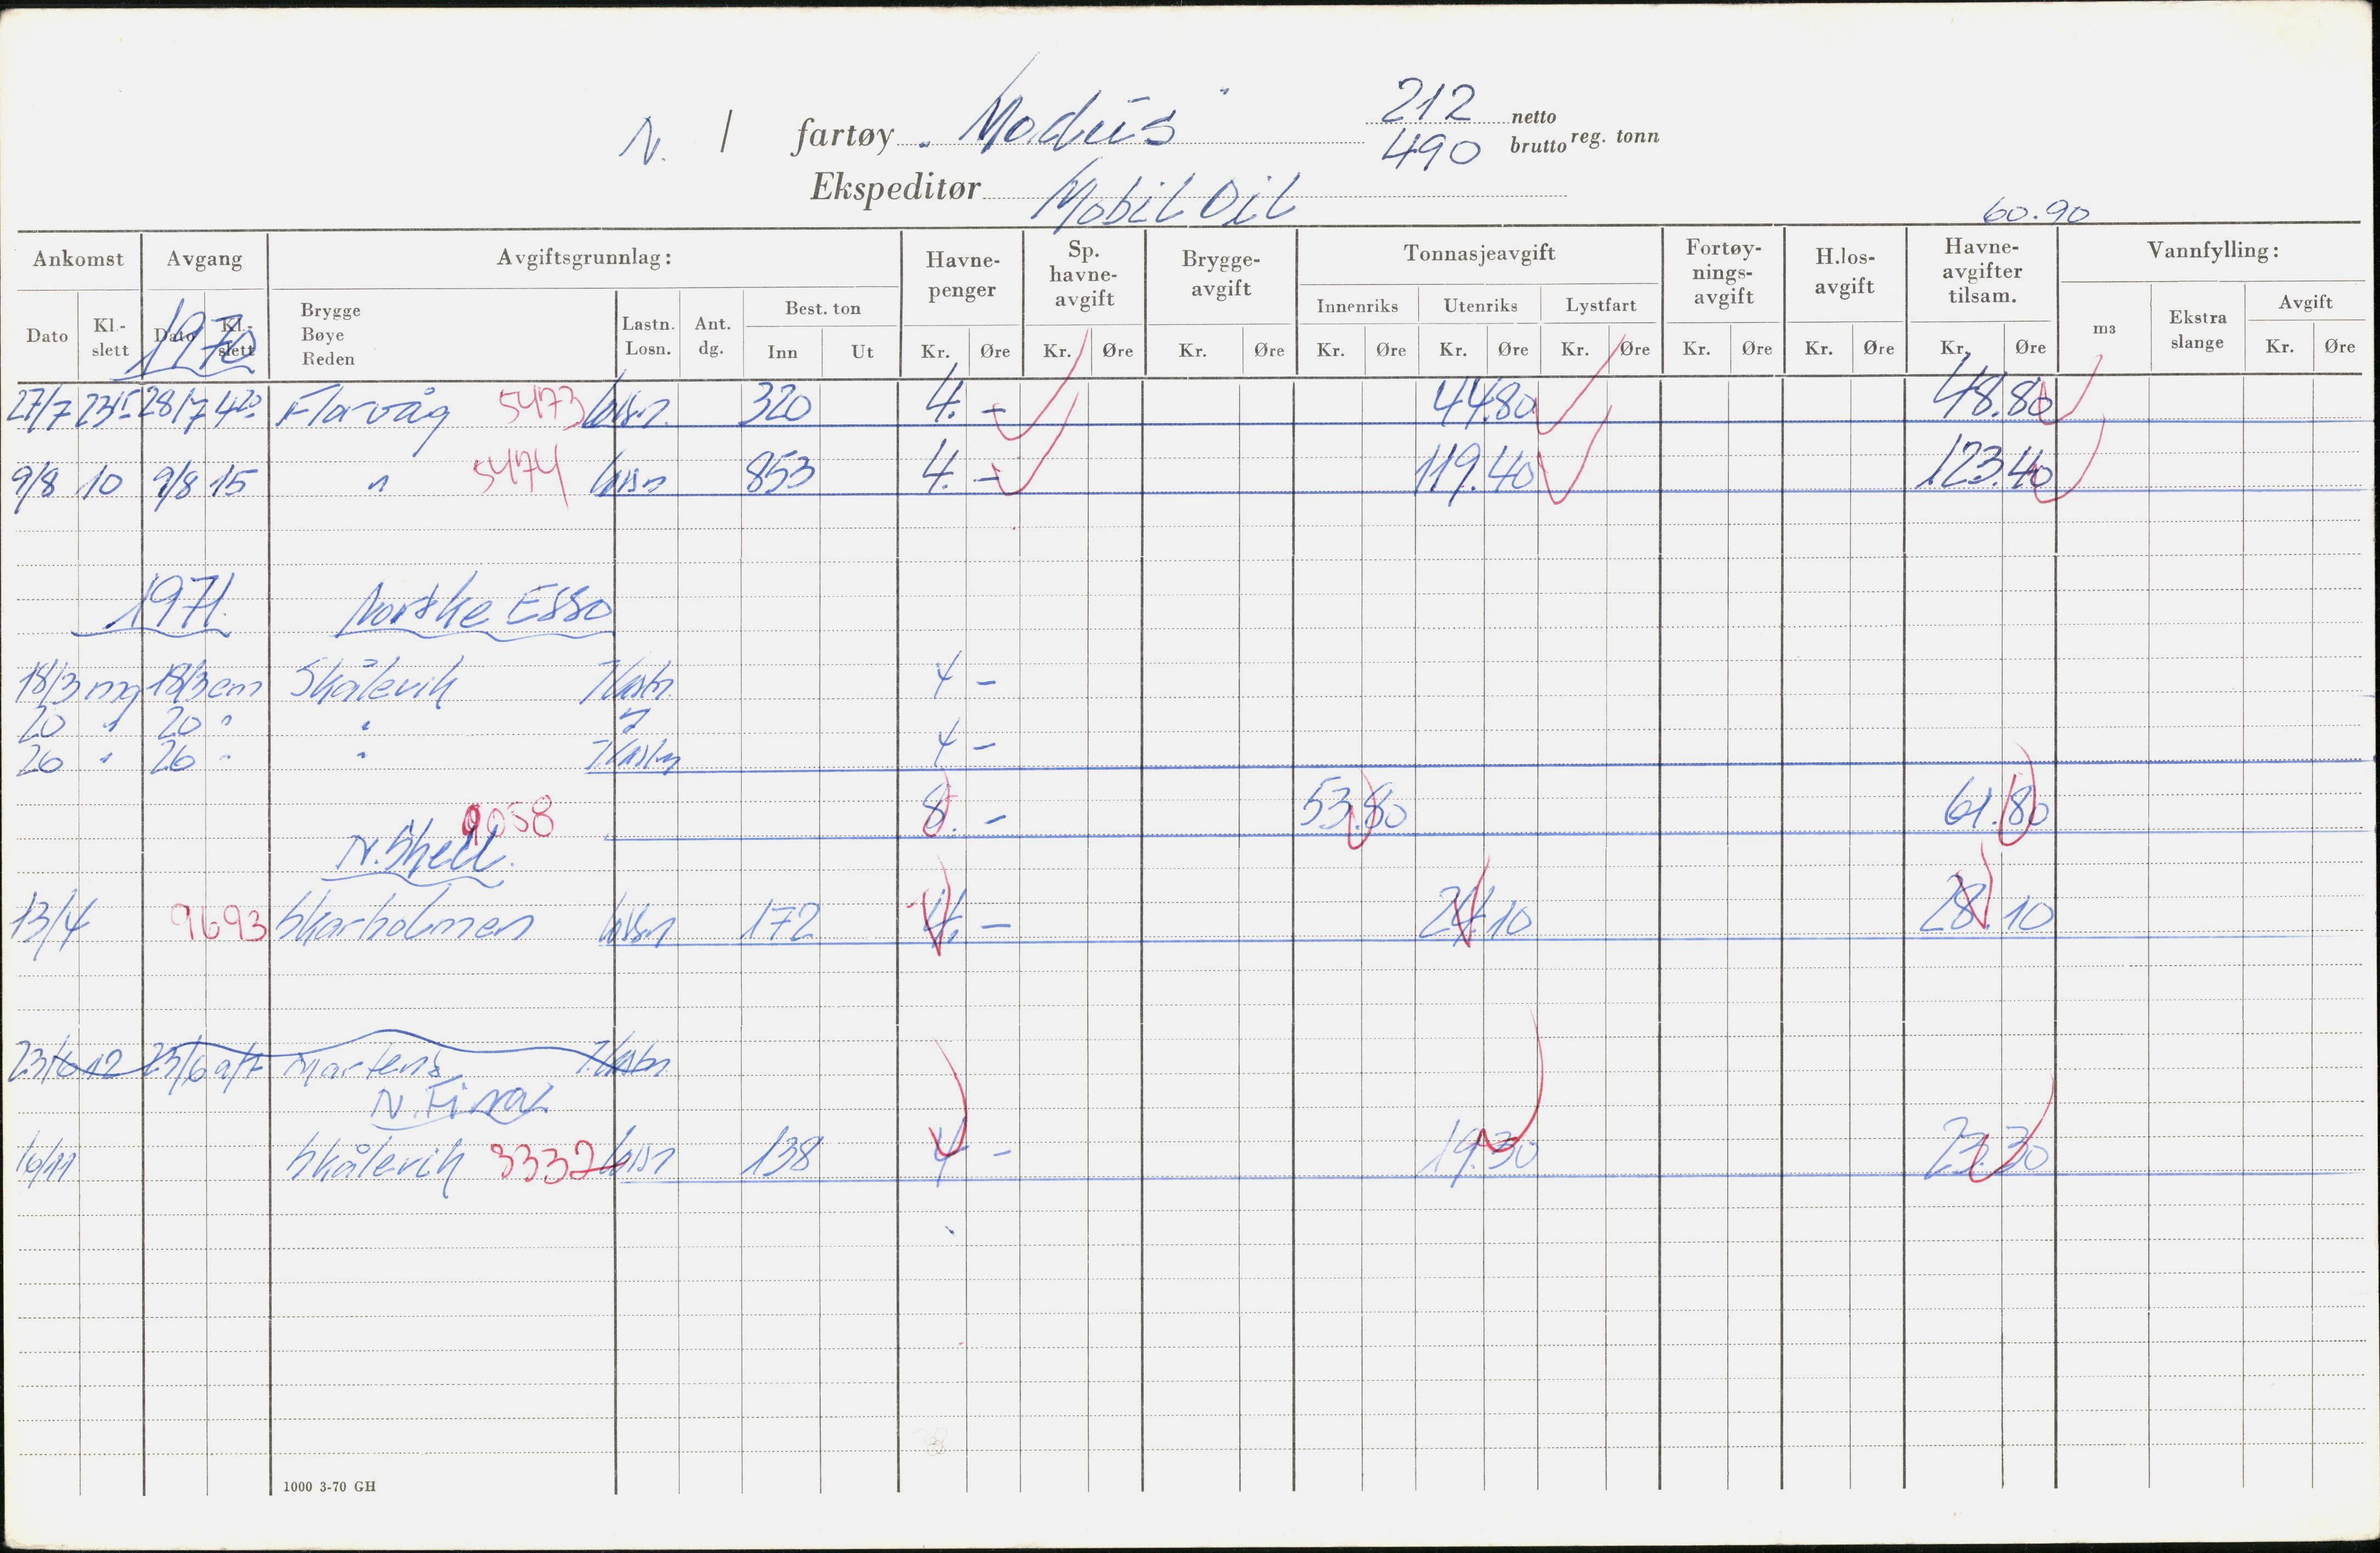 212 netto
N. / fartøy „ Modus "
490 brutto reg. tonn
Ekspeditør Mobil Oil
60.90
Ankomst Avgang Avgiftsgrunnlag: Havne-penger Sp. havne-avgift Brygge-avgift Tonnasjeavgift Fortøy-nings-avgift H.los-avgift Havne-avgifter tilsam. Vannfylling:
Dato Kl.-slett Dato Kl.-slett Brygge Bøye Reden Lastn. Losn. Ant. dg. Best. ton Innenriks Utenriks Lystfart m3 Ekstra slange Avgift
Inn Ut Kr. Øre Kr. Øre Kr. Øre Kr. Øre Kr. Øre Kr. Øre Kr. Øre Kr. Øre Kr. Øre Kr. Øre
1970
27/7 2315 28/7 420 Flavåg 5473 lossn. 320 4. - 44.80 48.80
9/8 10 9/8 15 " 5474 lossn 853 4. - 119.40 123.40
1971. Norske Esso
18/3 mg 18/3 em Skålevik T/lastn. 4 -
20 " 20 " " "
26 " 26 " " T/lastn 4 -
9058 8. - 53.80 61.80
N. Shell.
13/4 9693 Skarholmen lossn 172 4. - 24.10 28.10
23/6 12 23/6 Martens T/lastn
N. Fina
16/11 Skålevik 3332 lossn 138 4 - 19.30 23.30
1000 3-70 GH